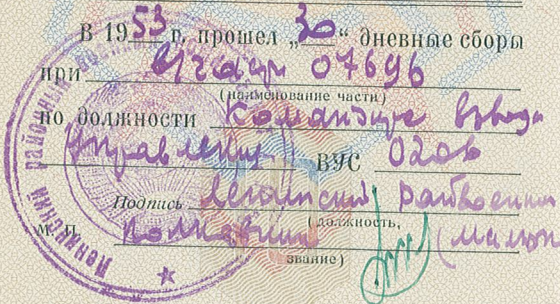 В 1953 г. прошел „30“ дневные сборы
при в/части 07696
(наименование части)
по должности Командира взвода
Управления ВУС 0206
Подпись Ленинский райвоенком
(должность,
м. п. Полковник
звание)
Ленинский районный